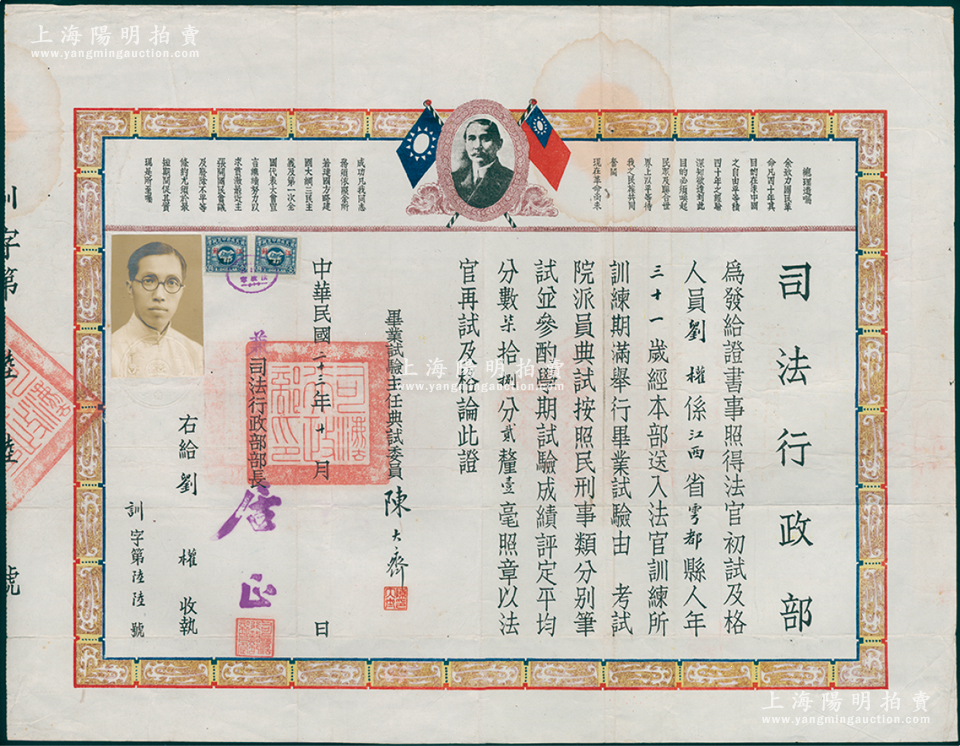 上海陽明拍賣
www.yangmingauction.com
上海陽明拍賣
www.yangmingauction.com
總理遺囑
余致力國民革
命凡四十年其
目的在求中國
之自由平等積
四十年之經驗
深知欲達到此
目的必須喚起
民眾及聯合世
界上以平等待
我之民族共同
奮鬥
現在革命尚未
成功凡我同志
務須依照余所
著建國方略建
國大綱三民主
義及第一次全
國代表大會宣
言繼續努力以
求貫徹最近主
張開國民會議
及廢除不平等
條約尤須於最
短期間促其實
現是所至囑
司法行政部
為發給證書事照得法官初試及格
人員劉權係江西省雩都縣人年
三十一歲經本部送入法官訓練所
訓練期滿舉行畢業試驗由考試
院派員典試按照民刑事類分別筆
試並參酌學期試驗成績評定平均
分數柒拾捌分貳釐壹毫照章以法
官再試及格論此證
畢業試驗主任典試委員 陳大齊
司法行政部部長 居正
中華民國二十三年十月 日
右給劉權收執
訓字第陸陸號
訓字第陸陸號
上海陽明拍賣
www.yangmingauction.com